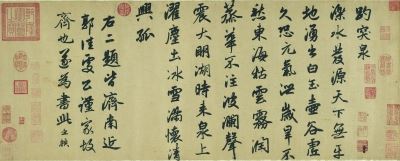 趵突泉
濼水發源天下無平
地湧出白玉壺谷虛
久恐元氣洩歲旱不
愁東海枯雲霧潤
蒸華不注波瀾聲
震大明湖時來泉上
濯塵土冰雪滿懷清
興孤
右二題皆濟南近
郭佳處公謹家故
齊也遂為書此孟頫